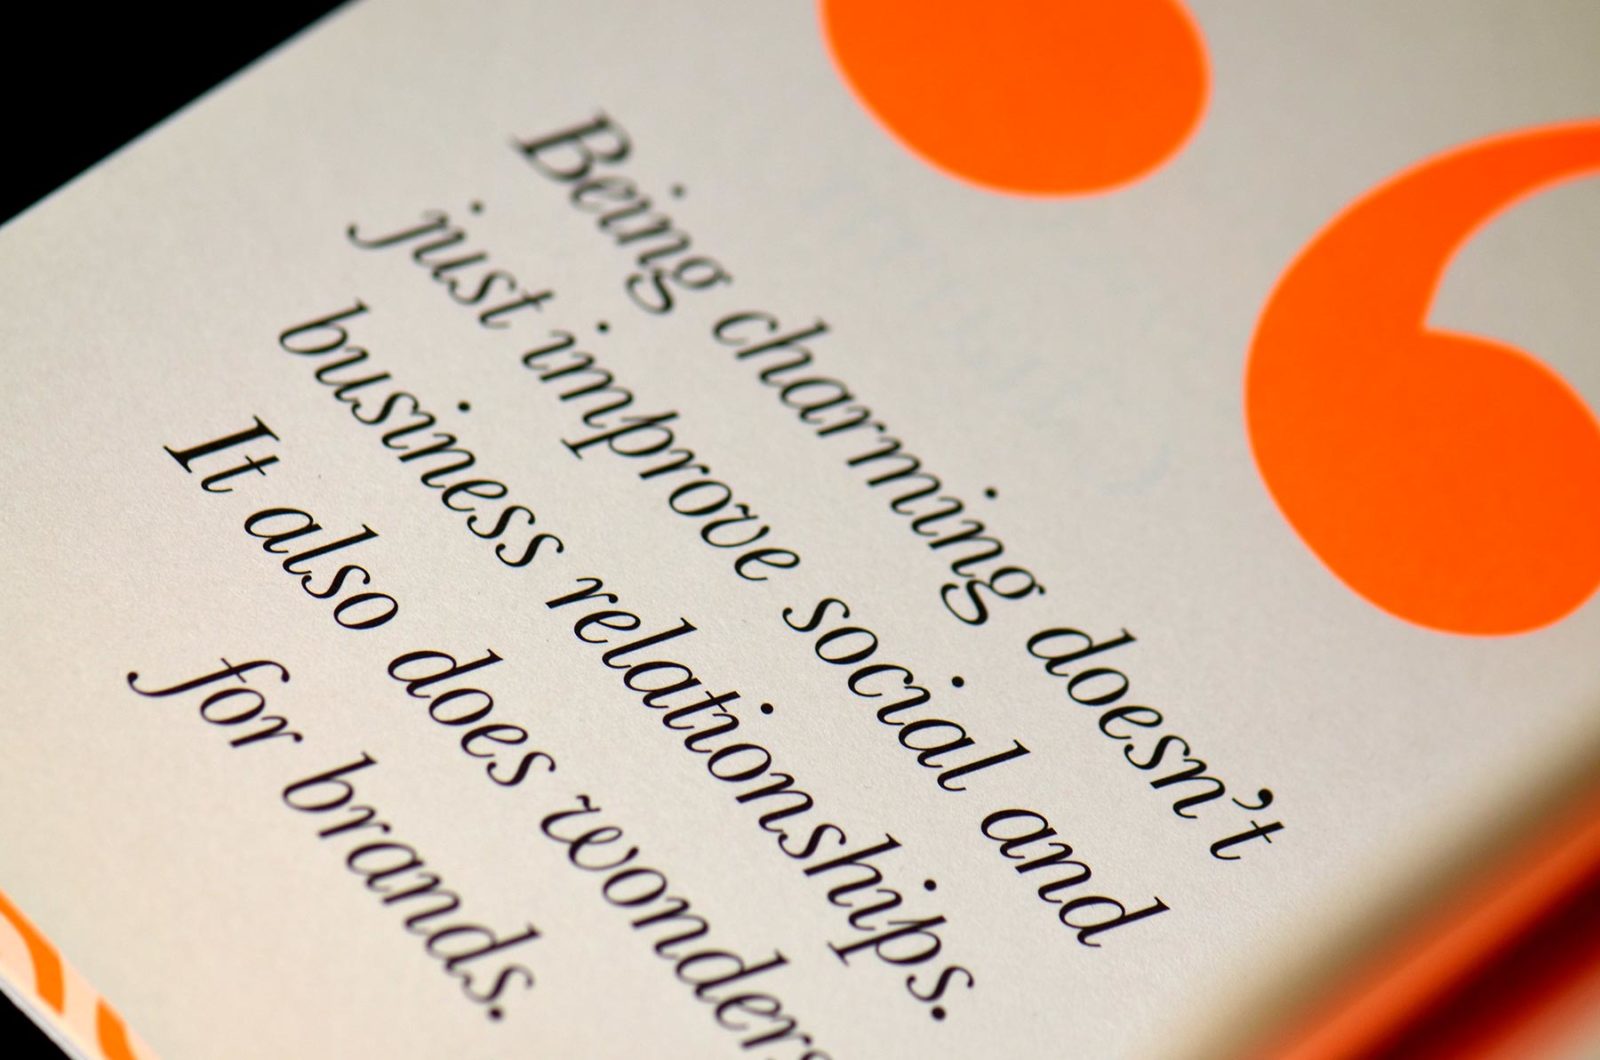 Being charming doesn’t
just improve social and
business relationships.
It also does wonders
for brands.